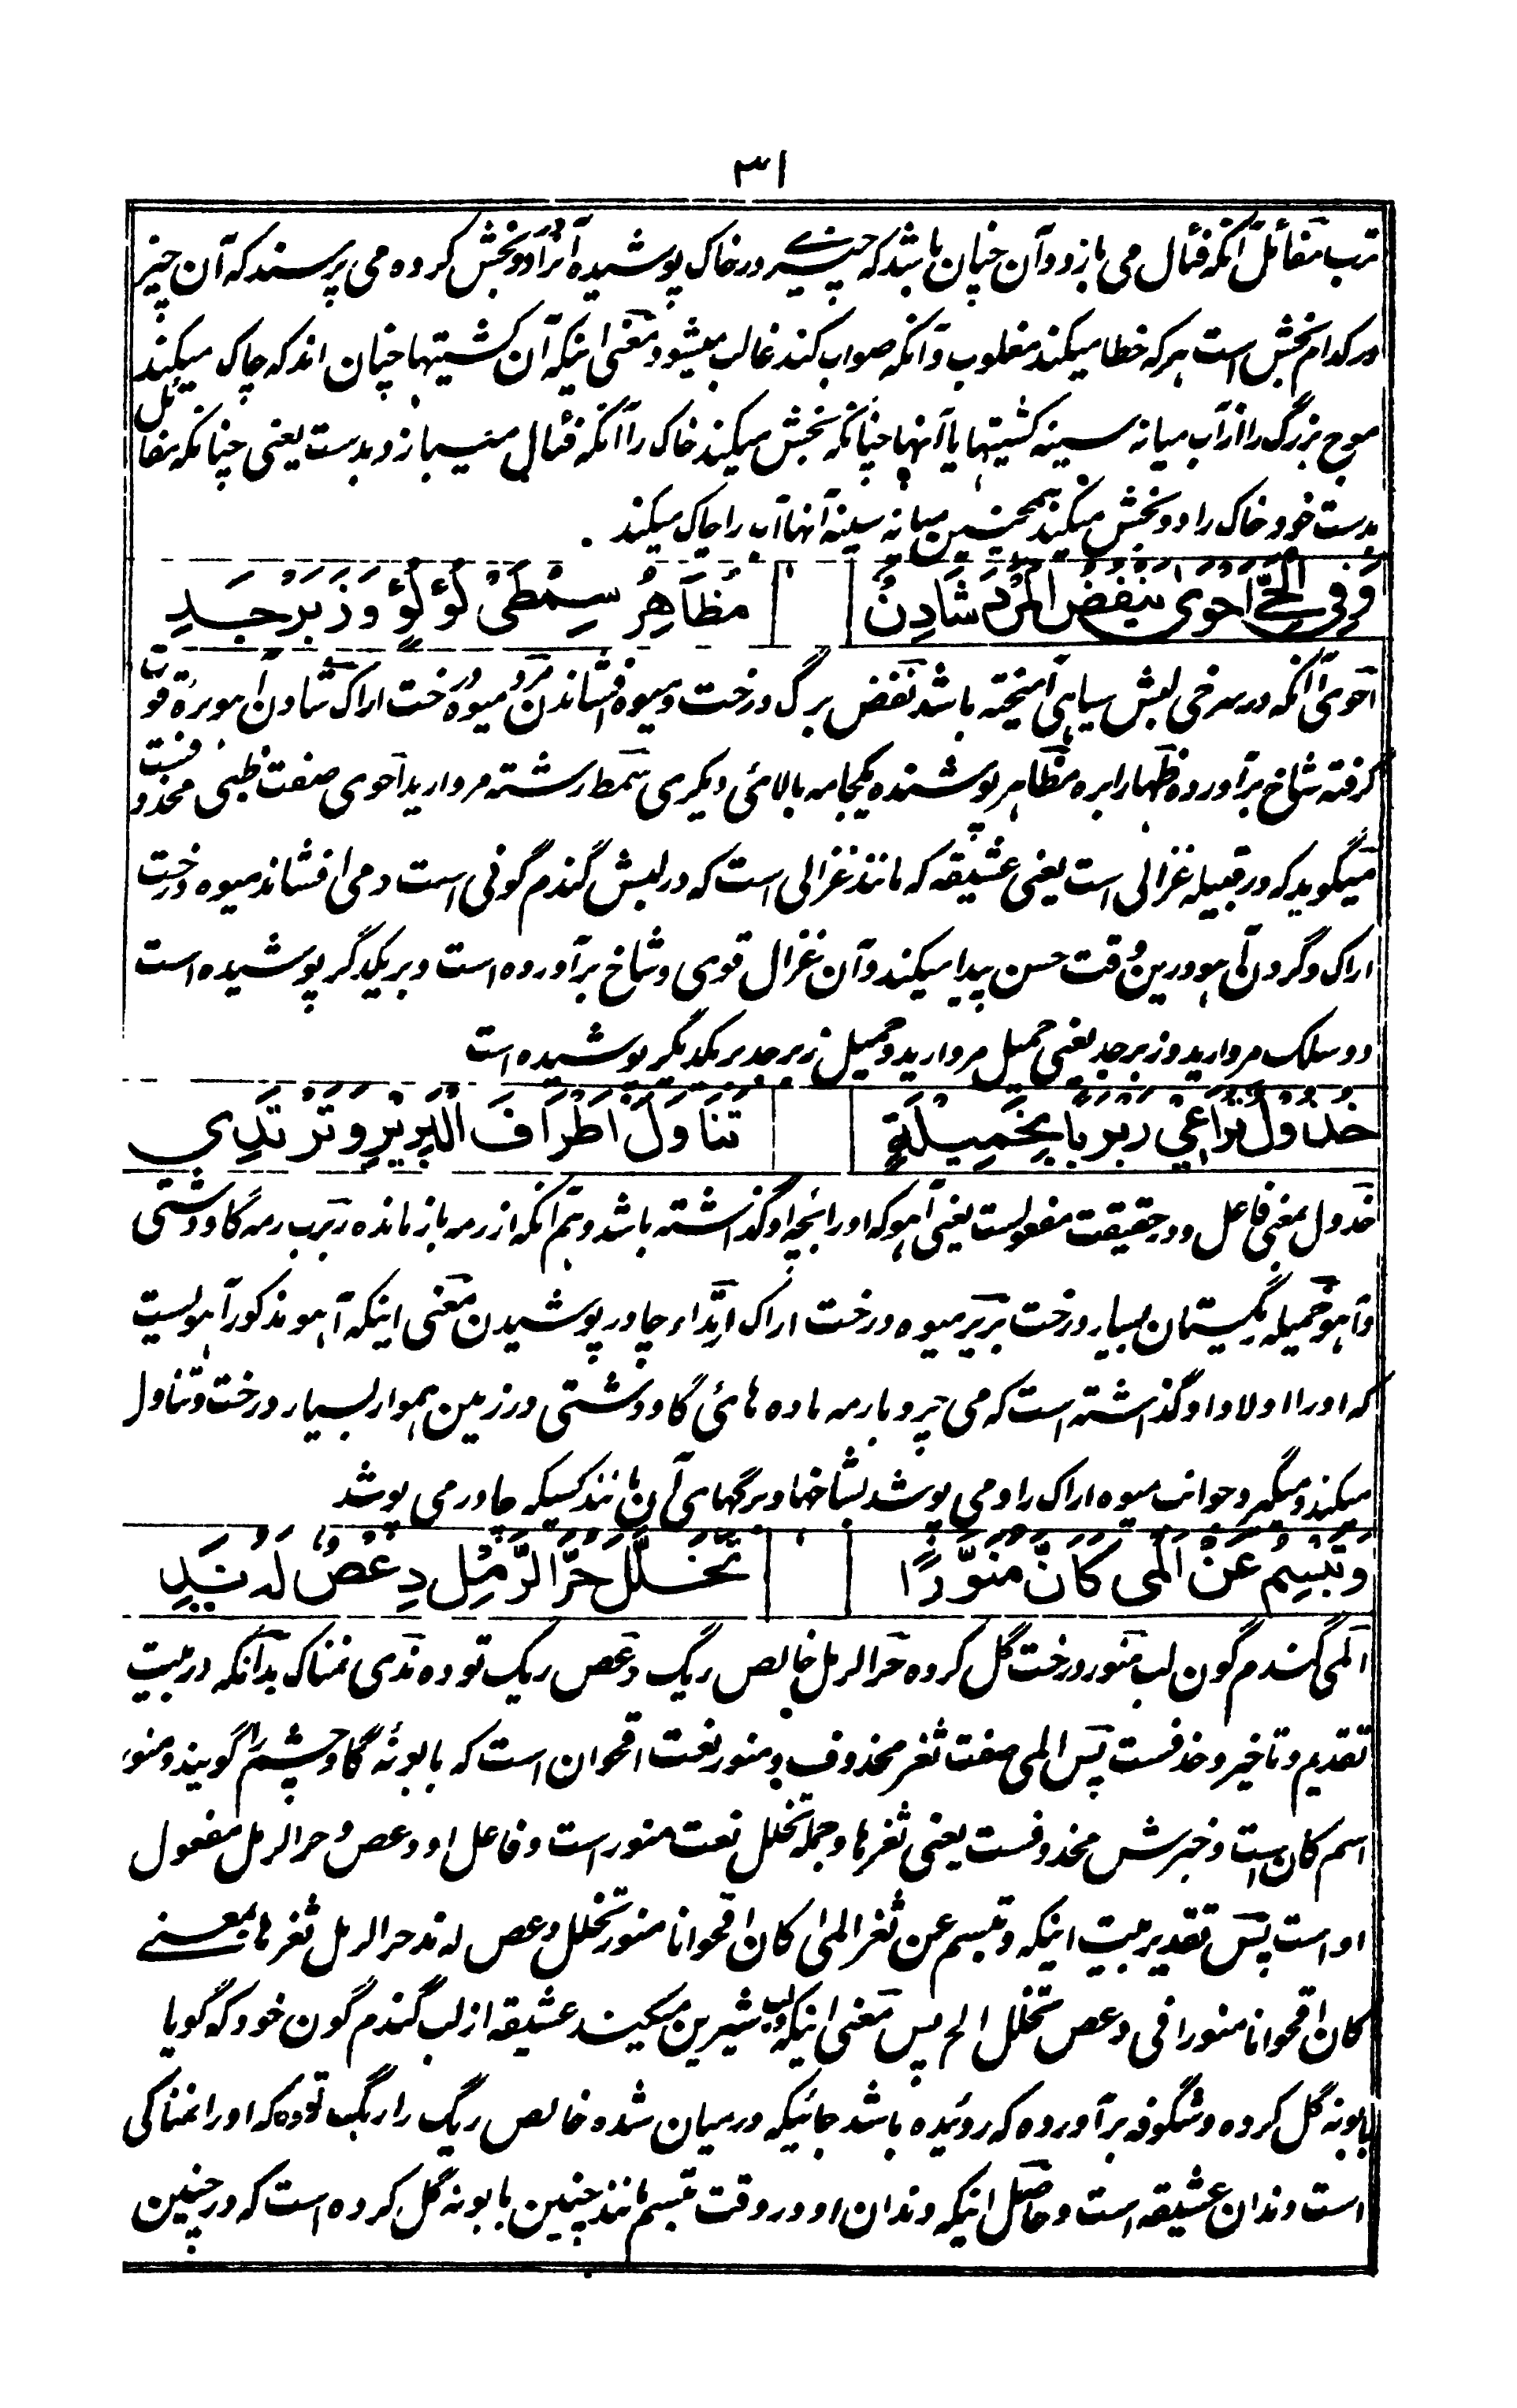 ۳۱
ترب مفائل آنکه فئال می بازد و آن چنان باشد که چیزے در خاک پوشیده آنرا دو بخش کرده می پرسند که آن چیز
در کدام بخش است هر که خطا میکند مغلوب و آنکه صواب کند غالب میشود معنی اینکه آن کشتیها چنان اند که چاک میکند
موج بزرگ را از آب میانه سینه کشتیها یا آنها چنانکه بخش میکند خاک را آنکه فئال میبازد بدست یعنی چنانکه مفائل
بدست خود خاک را دو بخش میکند همچنین میانه سینه آنها آب را چاک میکند .
وَفِی الْحَیِّ اَحْوٰی یَنْفُضُ الْمَرْدَ شَادِنٌ
مُظَاهِرُ سِمْطَیْ لُؤْلُؤٍ وَزَبَرْجَدِ
احوی آنکه در سرخی لبش سیاهی آمیخته باشد نفض برگ درخت و میوه افشاندن مرد میوه درخت اراک شادن آهو بره قوت
گرفته شاخ برآورده ظهار ابره مظاهر پوشنده یکجامه بالائی دیگری سمط رشته مروارید احوی صفت ظبی محذوفست
میگوید که در قبیله غزالی است یعنی عشیقه که مانند غزالی است که در لبش گندم گونی است و می افشاند میوه درخت
اراک و گردن آهو درین وقت حسن پیدا میکند و آن غزال قوی و شاخ برآورده است و بر یکدگر پوشیده است
دو سلک مروارید و زبرجد یعنی حمیل مروارید و حمیل زبرجد بر یکدیگر پوشیده است
خَذُوْلٌ تُرَاعِیْ رَبْرَبًا بِخَمِیْلَةٍ
تَنَاوَلُ اَطْرَافَ الْبَرِیْرِ وَتَرْتَدِیْ
خذول بمعنی فاعل و در حقیقت مفعولست یعنی آهو که او را بچه او گذاشته باشد و هم آنکه از رمه باز مانده ربرب رمه گاو دشتی
و آهو خمیله ریگستان بسیار درخت بریر میوه درخت اراک ارتداء چادر پوشیدن معنی اینکه آهو مذکور آهوئیست
که او را اولاد او گذاشته است که می چرد با رمه ماده هائی گاو دشتی در زمین هموار بسیار درخت و تناول
میکند و میگیرد جوانب میوه اراک را و می پوشد بشاخها و برگهای آن مانند کسیکه چادر می پوشد
وَتَبْسِمُ عَنْ اَلْمٰی کَاَنَّ مُنَوَّرًا
تَخَلَّلَ حُرَّ الرَّمْلِ دِعْصٌ لَهٗ نَدِ
المی گندم گون لب منور درخت گل کرده حر الرمل خالص ریگ دعص ریگ توده ندی نمناک بدانکه در بیت
تقدیم و تاخیر و حذفست پس المی صفت ثغر محذوف و منور نعت اقحوان است که بابونه گاو چشم را گویند و منور
اسم کان است و خبرش محذوفست یعنی ثغرها و جمله تخلل نعت منور است و فاعل او دعص و حر الرمل مفعول
او است پس تقدیر بیت اینکه و تبسم عن ثغر المی کان اقحوانا منور تخلل دعص له ند حر الرمل ثغرها بمعنے
کان اقحوانا منورا فی دعص تخلل الخ پس معنی اینکه لب شیرین میکند عشیقه از لب گندم گون خود که گویا
بابونه گل کرده و شگوفه برآورده که روئیده باشد جائیکه درمیان شده خالص ریگ را ریگ توده که او را نمناکی
است دندان عشیقه است و حاصل اینکه دندان او در وقت تبسم مانند چنین بابونه گل کرده است که در چنین